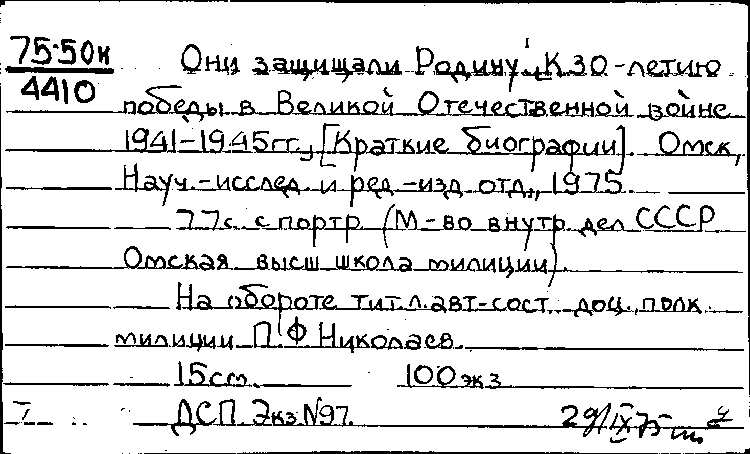 75-50к
4410
Они защищали Родину. [К 30-летию
победы в Великой Отечественной войне
1941-1945гг., [Краткие биографии]. Омск,
Науч.-исслед. и ред.-изд. отд., 1975.
77с. с портр. (М-во внутр. дел СССР
Омская высш. школа милиции).
На обороте тит. л. авт.-сост. доц., полк.
милиции П. Ф. Николаев.
15см. 100 экз.
ДСП. Экз. N97.
29/IX 75